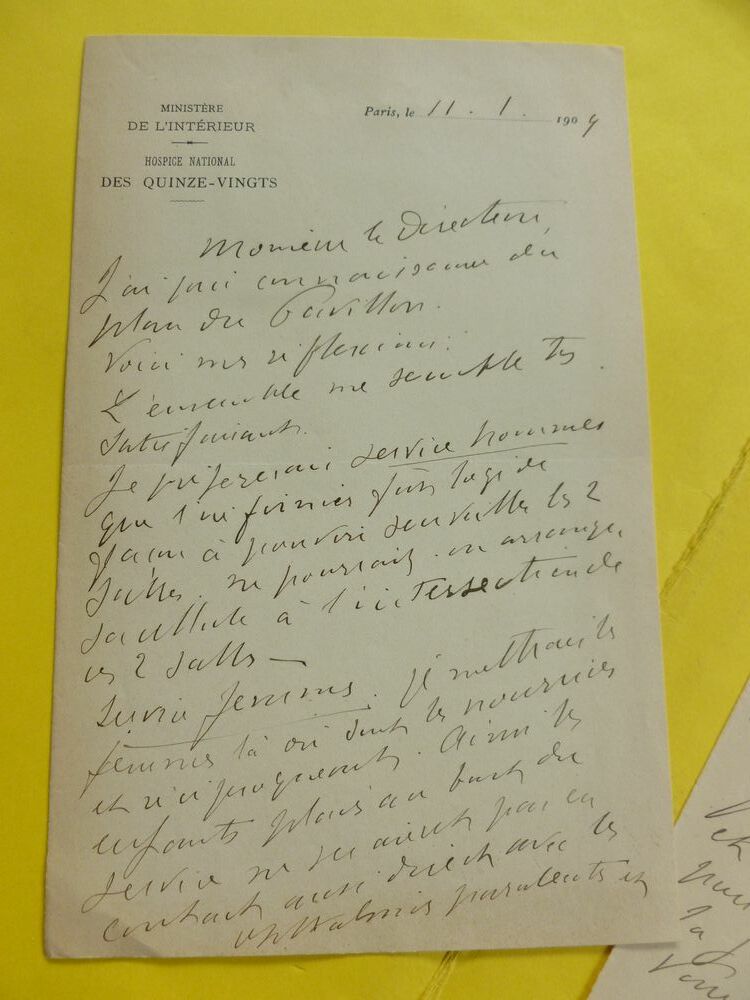 MINISTÈRE
DE L'INTÉRIEUR
HOSPICE NATIONAL
DES QUINZE-VINGTS
Paris, le 11 . 1 . 1909
Monsieur le Directeur,
J'ai pris connaissance du
plan du Pavillon.
Voici mes réflexions :
L'ensemble me semble très
satisfaisant.
Je préfererais service hommes
que l'infirmier fut logé de
façon à pouvoir surveiller les 2
salles. ne pourrait-on arranger
sa cellule à l'intersection de
ces 2 salles —
Service femmes. je mettrais les
femmes là où sont les nourrices
et réciproquement. Ainsi les
enfants placés au bout du
service ne seraient pas en
contact aussi direct avec les
ophtalmies purulentes et
et